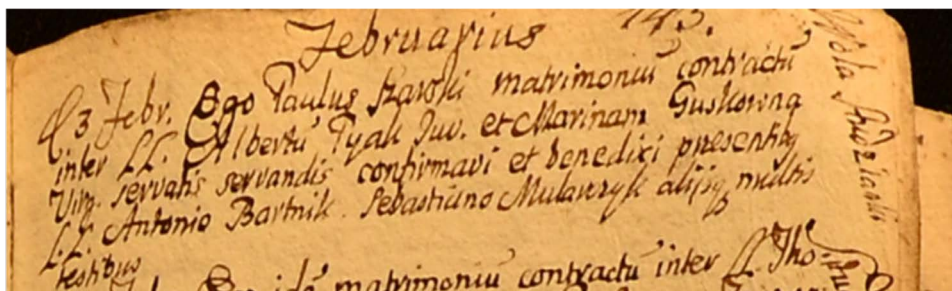 143.
Februarius
D 3 Febr. Ego Paulus Szawski matrimoniũ contractũ
inter LL. Albertũ Pyak Juv. et Marinam Guskowna
Virg. servatis servandis confirmavi et benedixi presentibq
L.L. Antonio Bartnik. Sebastiano Mularczyk alijsq multis
testibus
matrimoniũ contractũ inter LL. Tho.